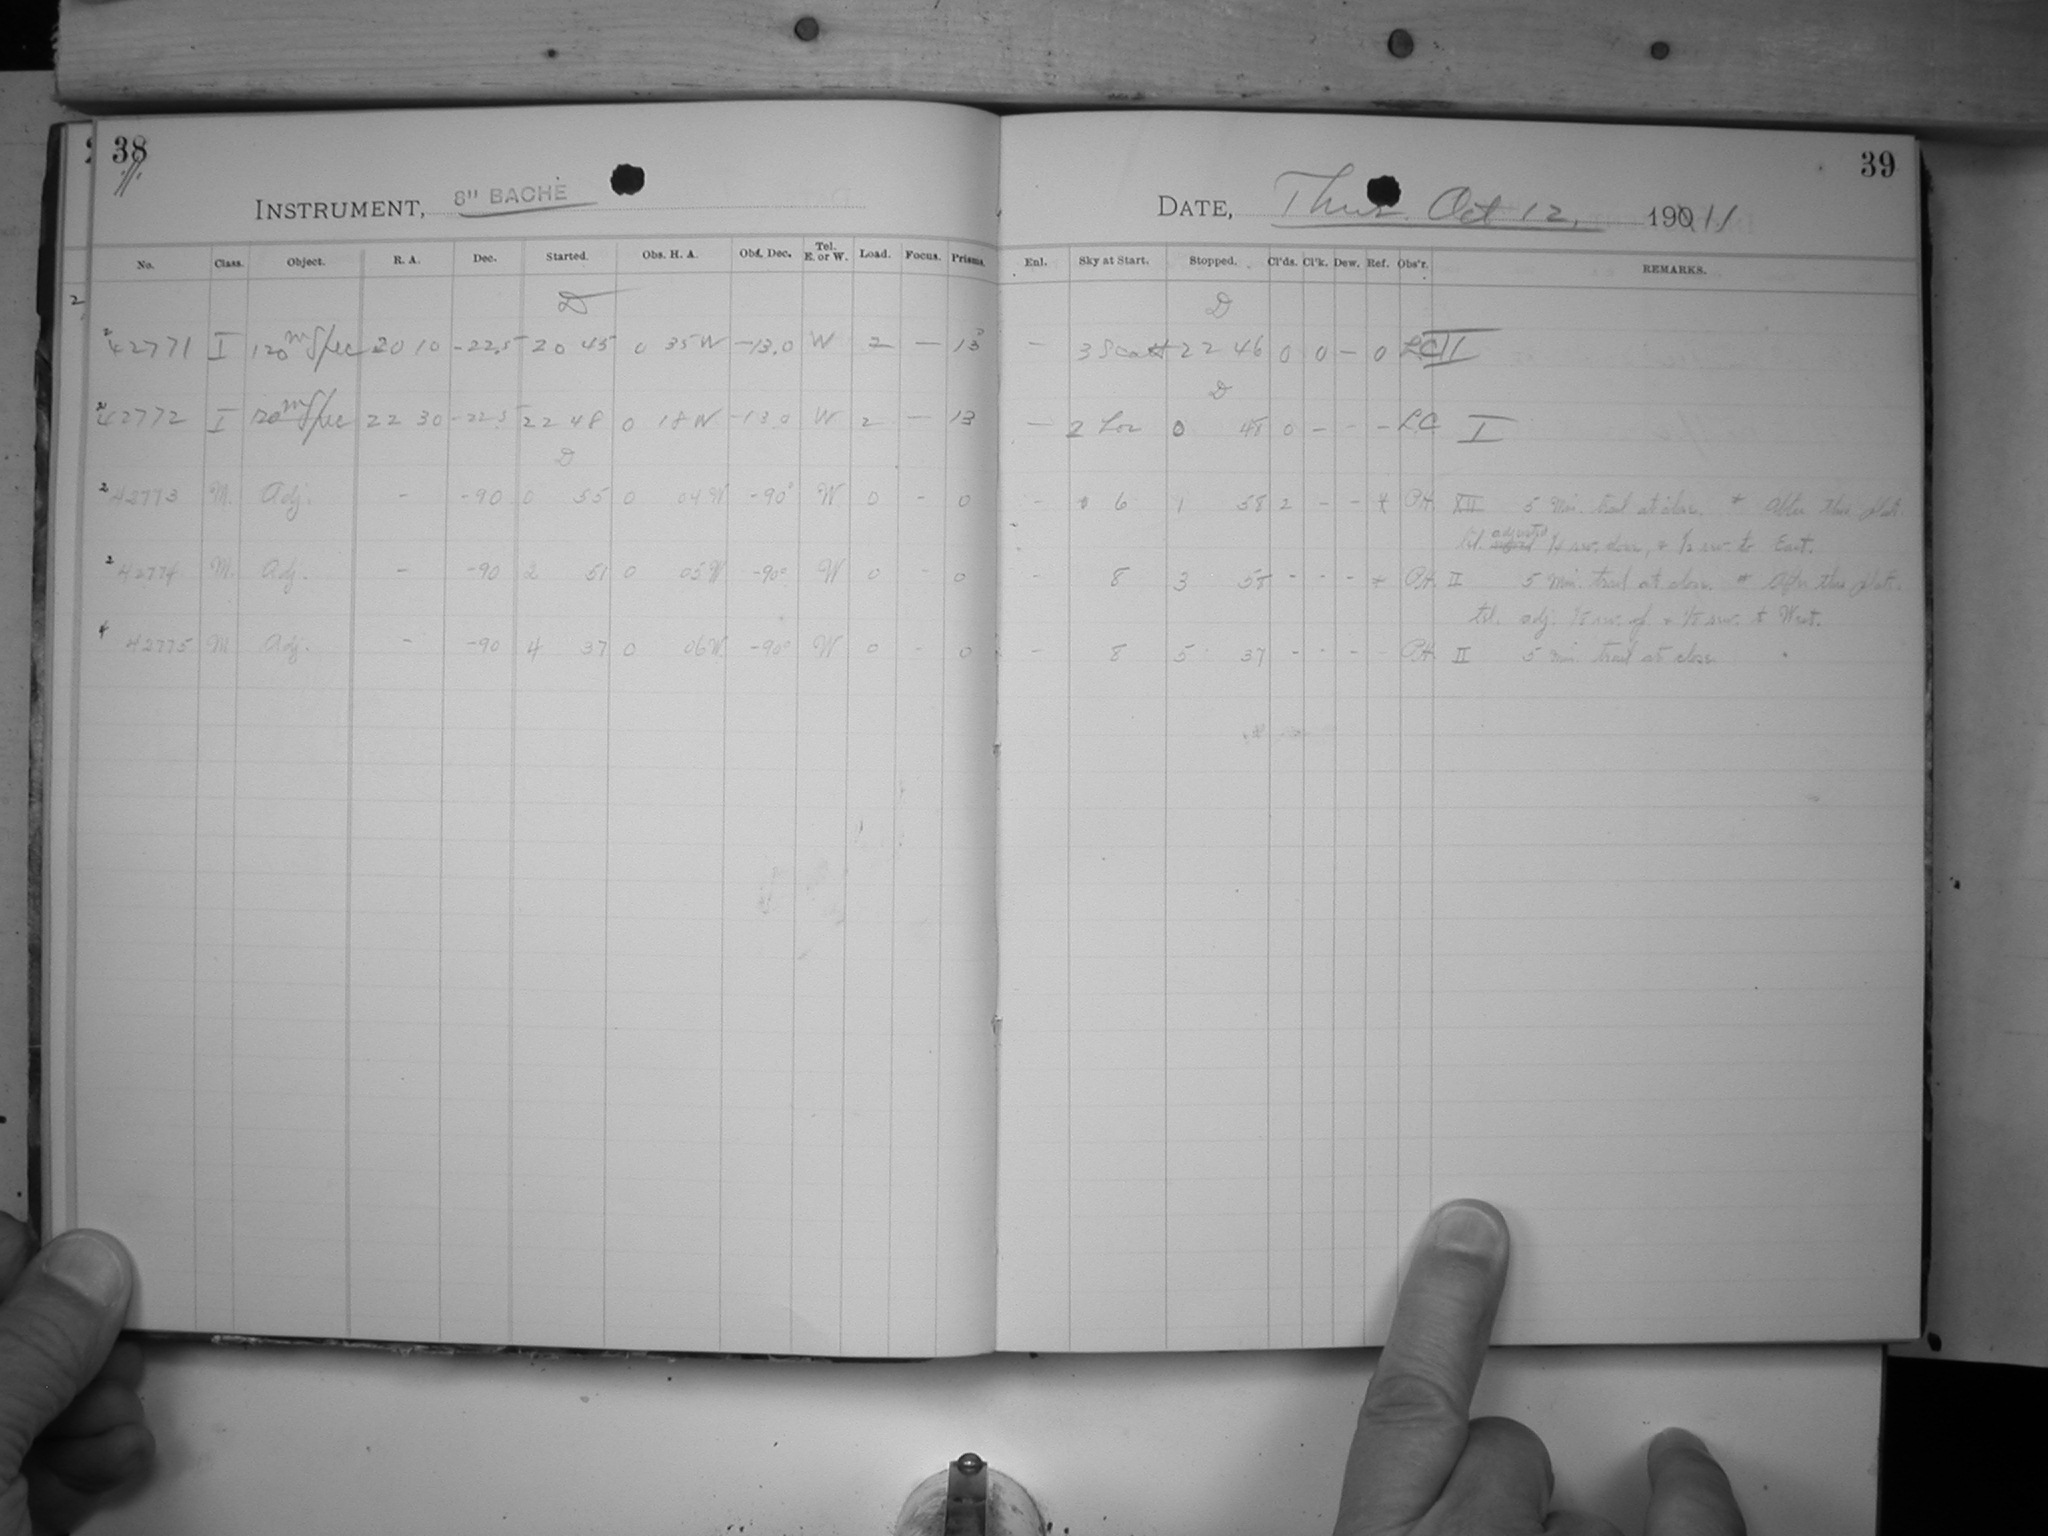 38
INSTRUMENT, 8" BACHE
No. Class. Object. R. A. Dec. Started. Obs. H. A. Obs. Dec. Tel. E. or W. Load. Focus. Prisms.
2
D
2 42771 I 120m Spec 20 10 -22.5 20 45 0 35 W -13.0 W 2 — 13
2 42772 I 120m Spec 22 30 -22.5 22 48 0 18 W -13.0 W 2 — 13
D
2 42773 M. Adj. - -90 0 55 0 04 W -90° W 0 - 0
2 42774 M. Adj. - -90 2 51 0 05 W -90° W 0 - 0
4 42775 M Adj. - -90 4 37 0 06 W -90° W 0 - 0
39
DATE, Thur. Oct 12, 1911
Enl. Sky at Start. Stopped. Cl'ds. Cl'k. Dew. Ref. Obs'r. REMARKS.
D
— 3 Scatt 22 46 0 0 — 0 LC II
D
— 2 0 48 0 - - - L.C. I
- 6 1 58 2 - - * P.H. 5 Min. trail at close. * After this plate
tel. adjusted 1/4 sw. down, & 1/2 sw. to East.
- 8 3 58 - - - * P.H. II 5 Min. trail at close. * After this plate
tel. adj. 1/8 sw. up & 1/8 sw. to West.
- 8 5 37 - - - - P.H. II 5 min. trail at close.